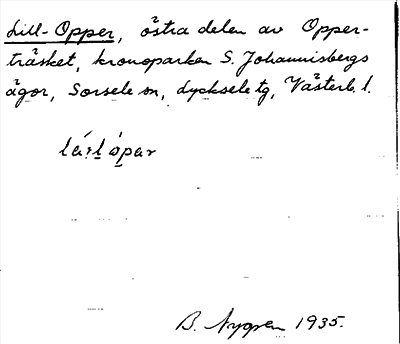 Lill-Opper, östra delen av Opper-
träsket, kronoparken S. Johannisbergs
ägor, Sorsele sn, Lycksele tg, Västerb. l.
B. Nygren 1935.